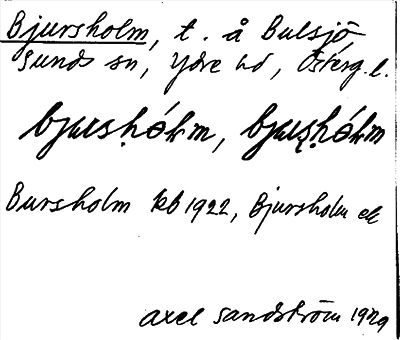 Bjursholm, t. å Bulsjö
Sunds sn, Ydre hd, Österg. l.
bjursḥólm, bjurṣḥólm
Bursholm kb 1922, Bjursholm ek
Axel Sandström 1929